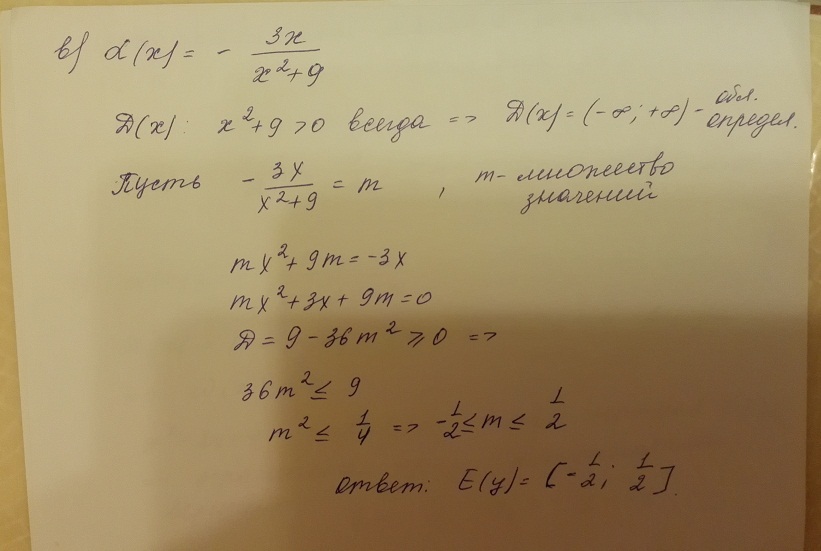 в) α(x) = - 3x / x²+9
D(x): x²+9 >0 всегда => D(x) = (-∞; +∞) - обл. определ.
Пусть - 3x / x²+9 = m , m - множество значений
mx²+9m = -3x
mx²+3x+9m=0
D = 9-36m² ⩾ 0 =>
36m² ≤ 9
m² ≤ 1/4 => -1/2 ≤ m ≤ 1/2
ответ: E(y) = [-1/2; 1/2].